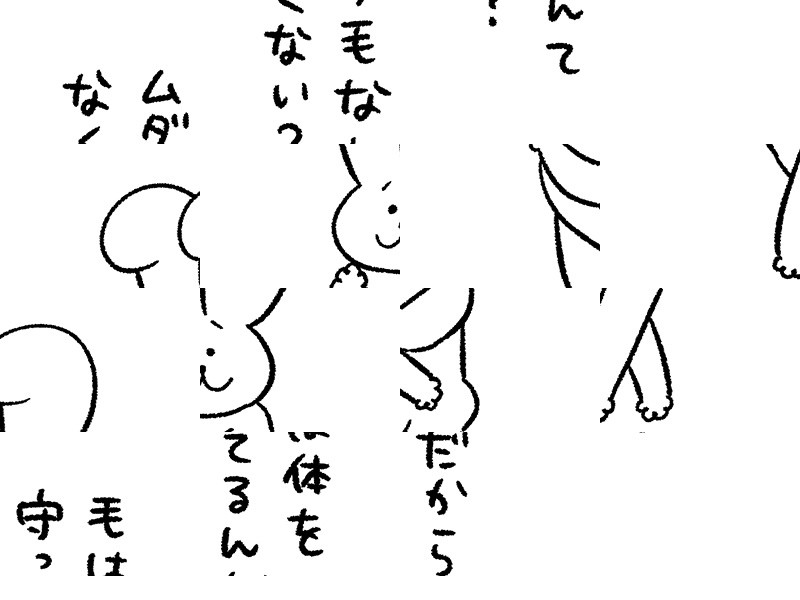 んて
?
毛な
ない
ムダ
な
だから
体を
てるん
毛は
守っ